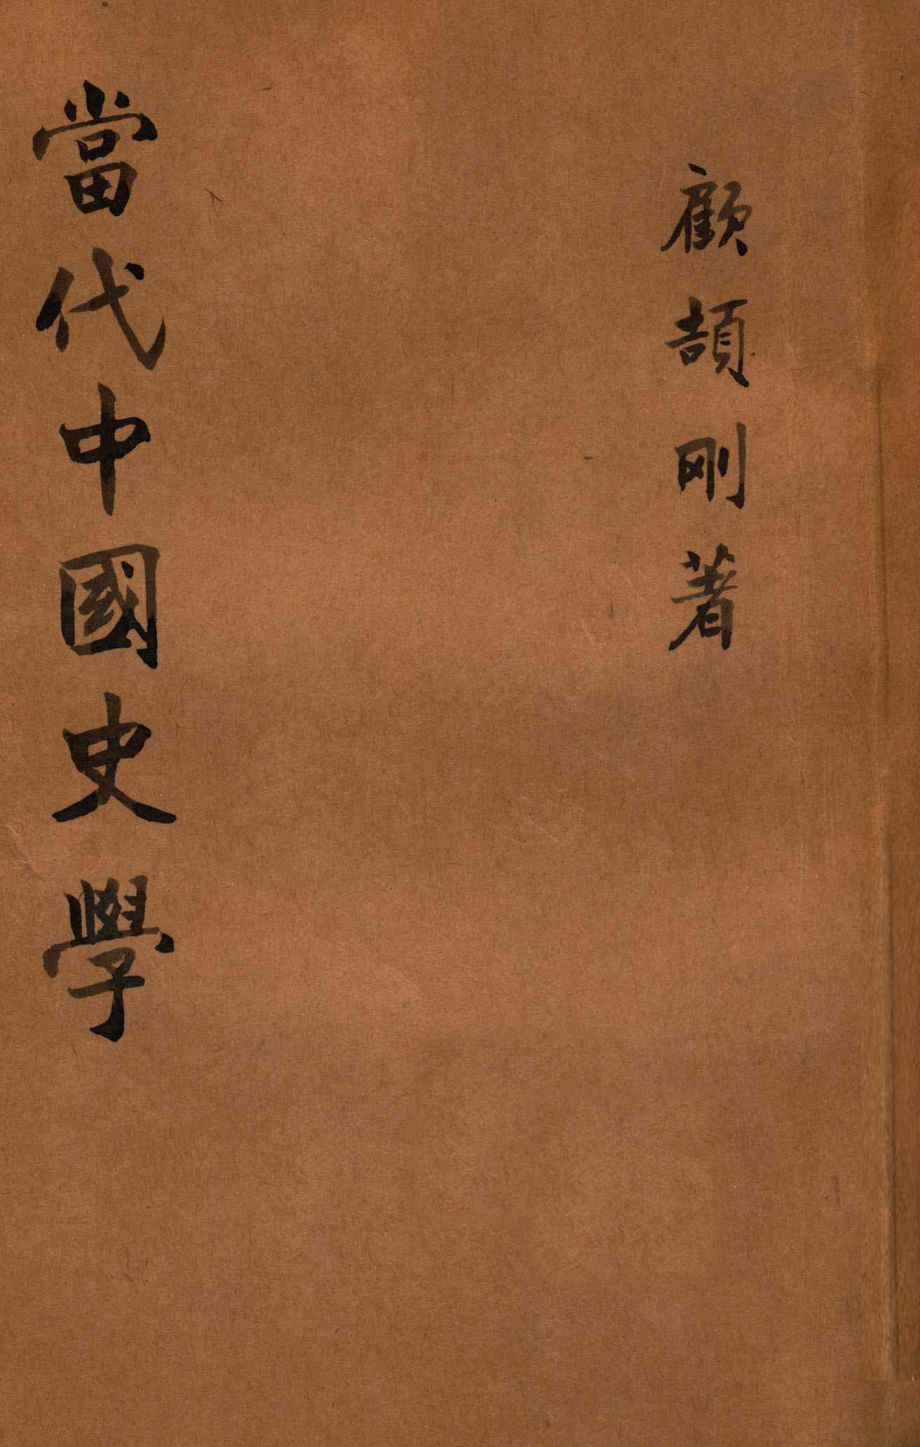 顧頡刚著
當代中國史學